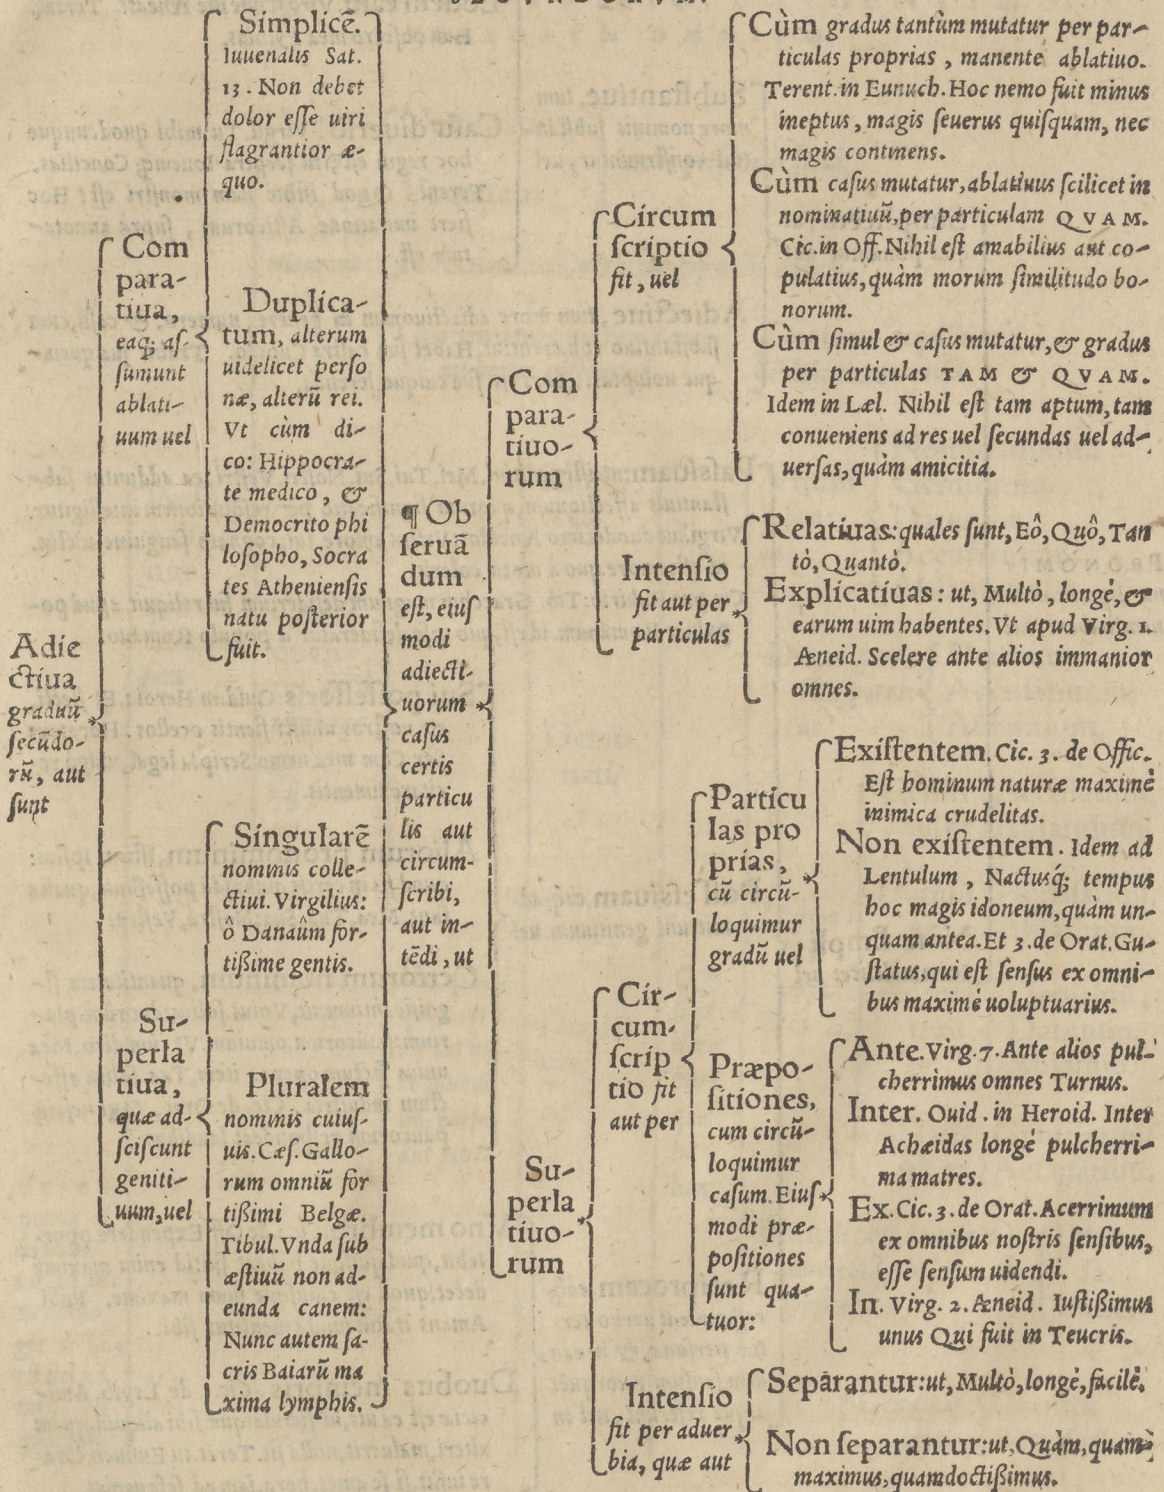 Adie
ctiua
graduū
secūdo-
rū, aut
sunt
Com
para-
tiua,
eaq́; as-
sumunt
ablati-
uum uel
Simplicē.
Iuuenalis Sat.
13. Non debet
dolor esse uiri
flagrantior æ-
quo.
Duplica-
tum, alterum
uidelicet perso
næ, alterū rei.
Vt cùm di-
co: Hippocra-
te medico, &
Democrito phi
losopho, Socra
tes Atheniensis
natu posterior
fuit.
Su-
perla
tiua,
quæ ad-
sciscunt
geniti-
uum, uel
Singularē
nominis colle-
ctiui. Virgilius:
ô Danaûm for-
tißime gentis.
Pluralem
nominis cuius-
uis. Cæs. Gallo-
rum omniū for
tißimi Belgæ.
Tibul. Vnda sub
æstiuū non ad-
eunda canem:
Nunc autem sa-
cris Baiarū ma
xima lymphis.
¶ Ob
seruā
dum
est, eius
modi
adiecti-
uorum
casus
certis
particu
lis aut
circum-
scribi,
aut in-
tēdi, ut
Com
para-
tiuo-
rum
Circum
scriptio
fit, uel
Cùm gradus tantùm mutatur per par-
ticulas proprias, manente ablatiuo.
Terent. in Eunuch. Hoc nemo fuit minus
ineptus, magis seuerus quisquam, nec
magis continens.
Cùm casus mutatur, ablatiuus scilicet in
nominatiuū, per particulam QVAM.
Cic. in Off. Nihil est amabilius aut co-
pulatius, quàm morum similitudo bo-
norum.
Cùm simul & casus mutatur, & gradus
per particulas TAM & QVAM.
Idem in Læl. Nihil est tam aptum, tam
conueniens ad res uel secundas uel ad-
uersas, quàm amicitia.
Intensio
fit aut per
particulas
Relatiuas: quales sunt, Eô, Quô, Tan
tò, Quantò.
Explicatiuas: ut, Multò, longè, &
earum uim habentes. Vt apud Virg. 1.
Æneid. Scelere ante alios immanior
omnes.
Su-
perla
tiuo-
rum
Cir-
cum-
scrip
tio fit
aut per
Particu
las pro
prias,
cū circū-
loquimur
gradū uel
Existentem. Cic. 3. de Offic.
Est hominum naturæ maximè
inimica crudelitas.
Non existentem. Idem ad
Lentulum, Nactusq́; tempus
hoc magis idoneum, quàm un-
quam antea. Et 3. de Orat. Gu-
status, qui est sensus ex omni-
bus maximè uoluptuarius.
Præpo-
sitiones,
cum circū-
loquimur
casum. Eius
modi præ-
positiones
sunt qua-
tuor:
Ante. Virg. 7. Ante alios pul-
cherrimus omnes Turnus.
Inter. Ouid. in Heroid. Inter
Achæidas longè pulcherri-
ma matres.
Ex. Cic. 3. de Orat. Acerrimum
ex omnibus nostris sensibus,
esse sensum uidendi.
In. Virg. 2. Æneid. Iustißimus
unus Qui fuit in Teucris.
Intensio
fit per aduer
bia, quæ aut
Separantur: ut, Multò, longè, facilè.
Non separantur: ut, Quàm, quàm
maximus, quamdoctißimus.